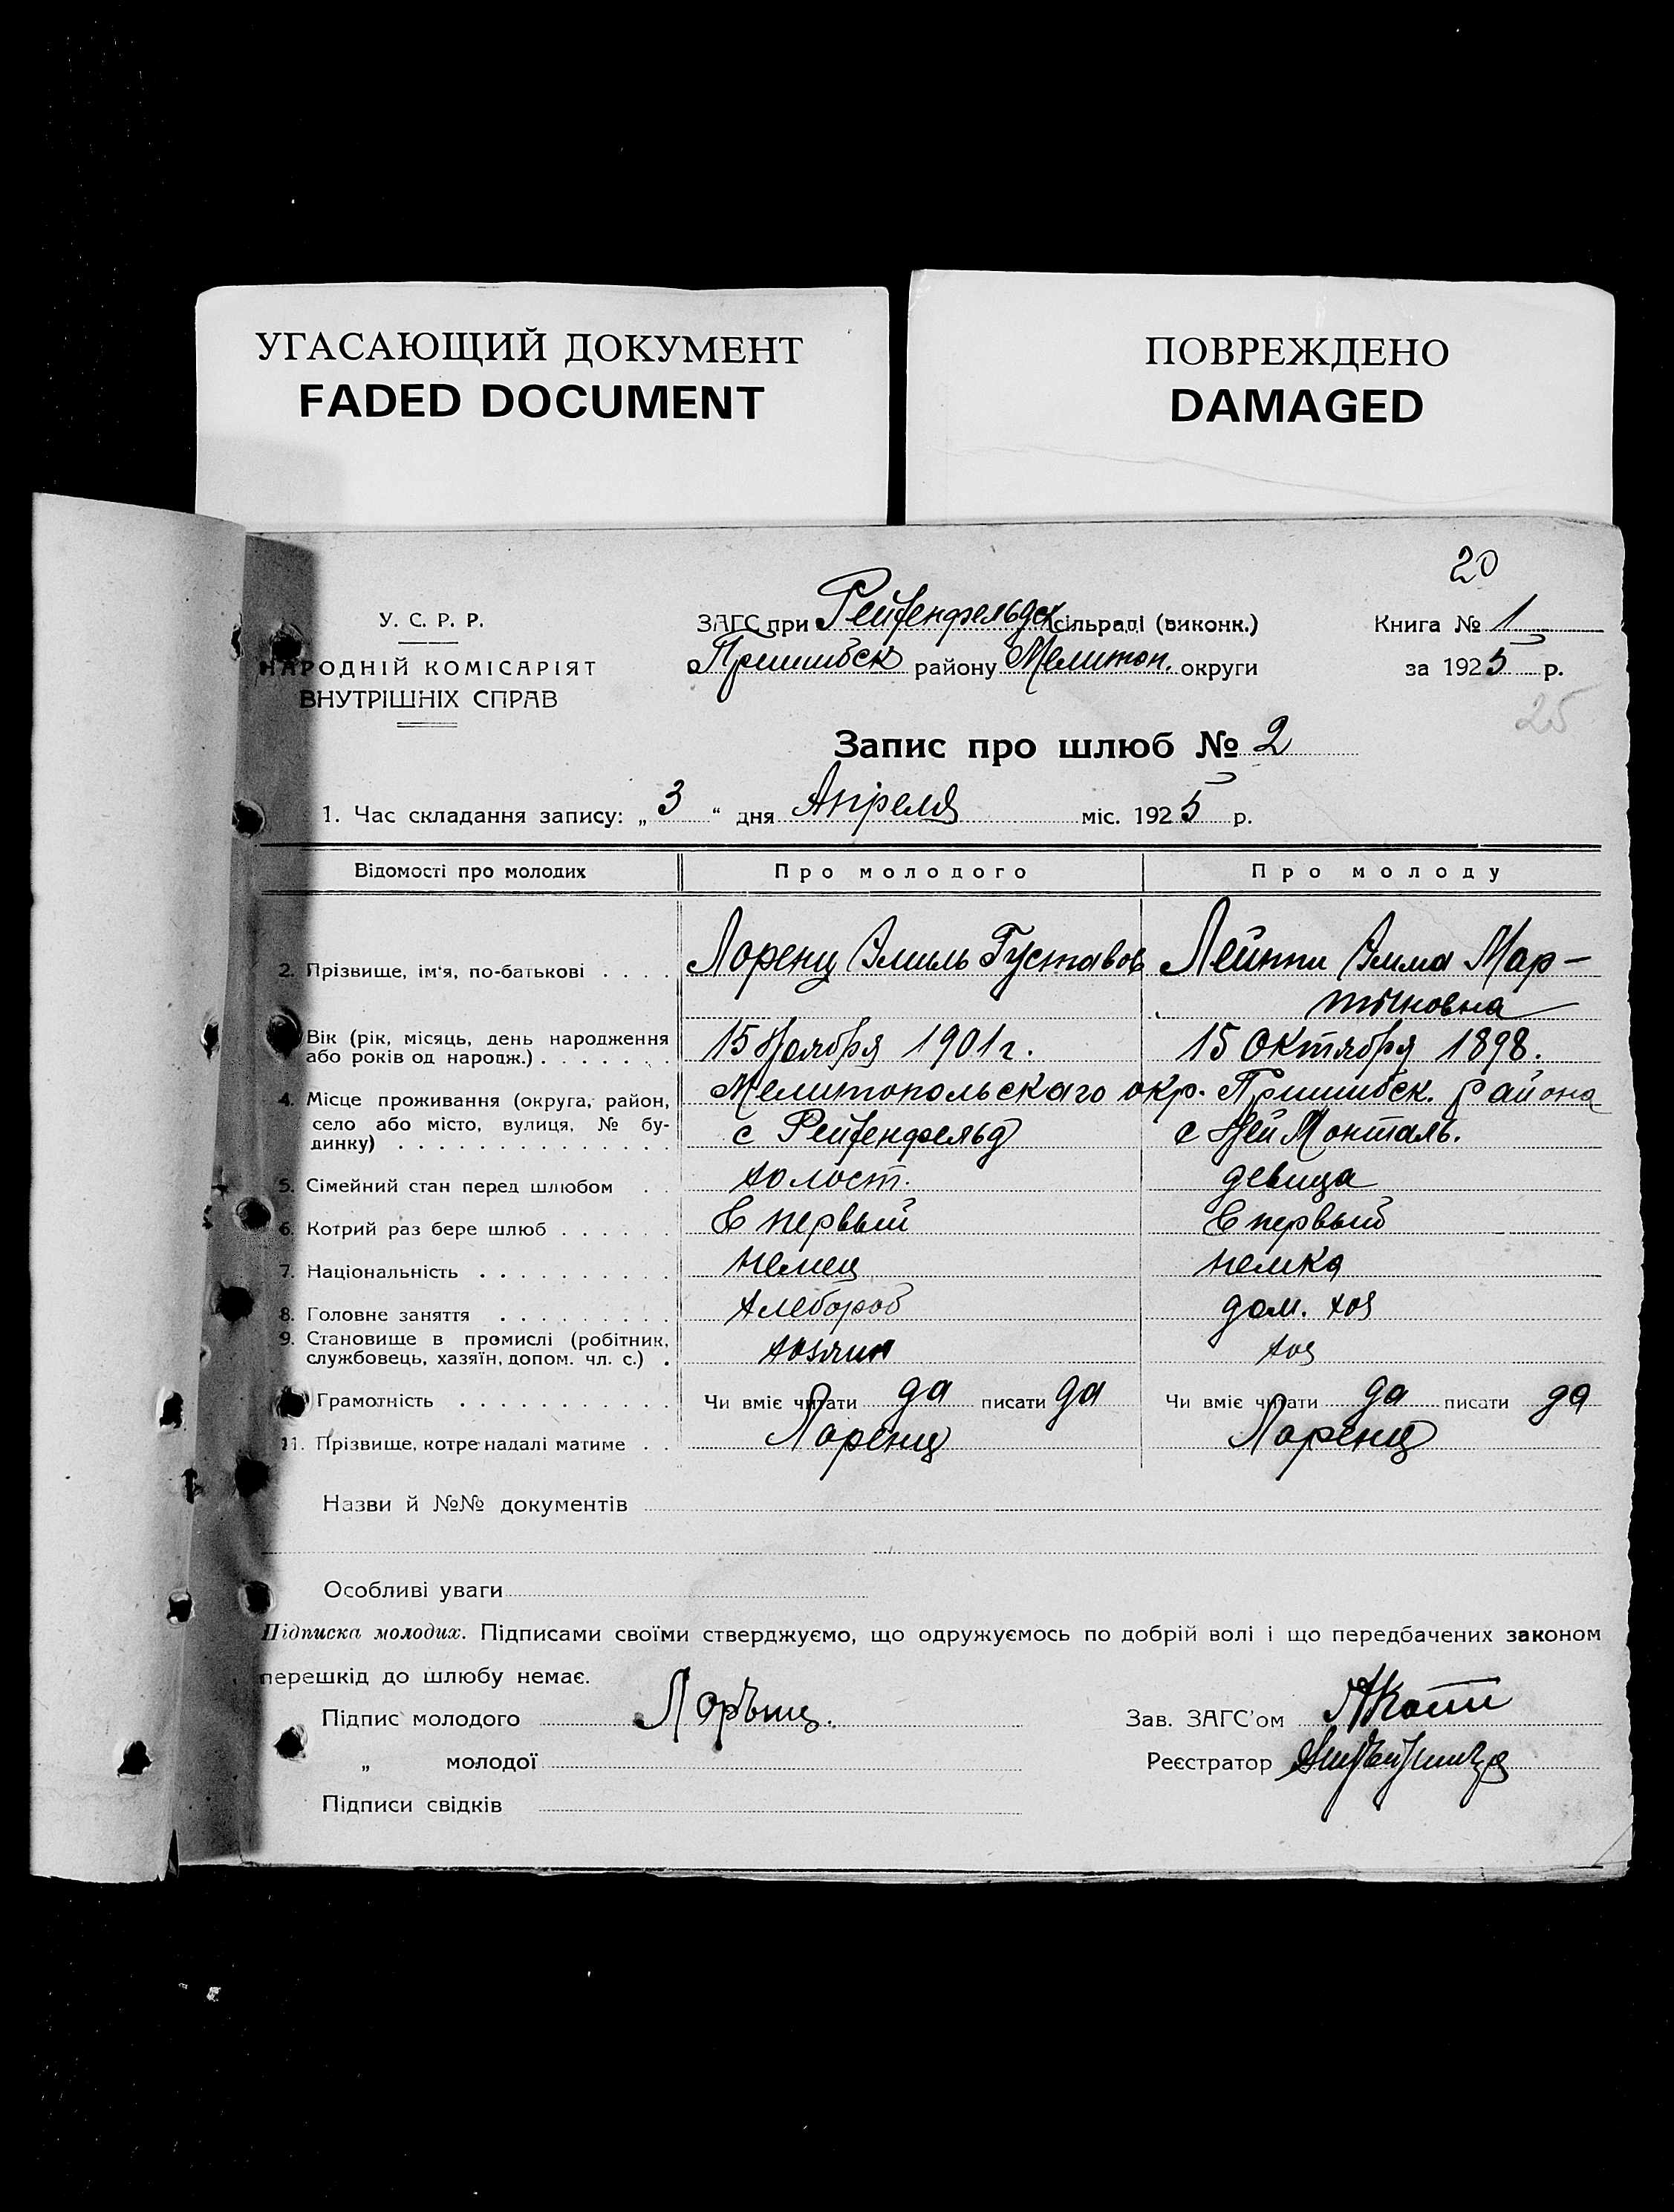 УГАСАЮЩИЙ ДОКУМЕНТ
FADED DOCUMENT
ПОВРЕЖДЕНО
DAMAGED
20
У. С. Р. Р.
НАРОДНІЙ КОМІСАРІЯТ
ВНУТРІШНІХ СПРАВ
ЗАГС при Рейфенфельдск сільраді (виконк.)
Пришибск району Мелитоп. округи
Книга № 1
за 1925 р.
25
Запис про шлюб № 2
1. Час складання запису: „ 3 “ дня Апреля міс. 1925 р.
Відомості про молодих Про молодого Про молоду
2. Прізвище, ім'я, по-батькові . . . . Лоренц Эмиль Густавов Лейппи Эмма Мар-
тиновна
Вік (рік, місяць, день народження
або років од народж.) . . . . . . . 15 Ноября 1901 г. 15 Октября 1898.
4. Місце проживання (округа, район, Мелитопольскаго окр. Пришибск. района
село або місто, вулиця, № бу- с Рейфенфельд с Ней Монталь.
динку) . . . . . . . . . . . . . .
5. Сімейний стан перед шлюбом . . холост. девица
6. Котрий раз бере шлюб . . . . . . в первый в первый
7. Національність . . . . . . . . . . немец немка
8. Головне заняття . . . . . . . . . хлебороб дом. хоз
9. Становище в промислі (робітник,
службовець, хазяїн, допом. чл. с.) . хозяин хоз
Грамотність . . . . . . . . . . . Чи вміє читати да писати да Чи вміє читати да писати да
11. Прізвище, котре надалі матиме . . Лоренц Лоренц
Назви й №№ документів
Особливі уваги
Підписка молодих. Підписами своїми стверджуємо, що одружуємось по добрій волі і що передбачених законом
перешкід до шлюбу немає.
Підпис молодого Лорънц.
„ молодої
Підписи свідків
Зав. ЗАГС'ом
Реєстратор